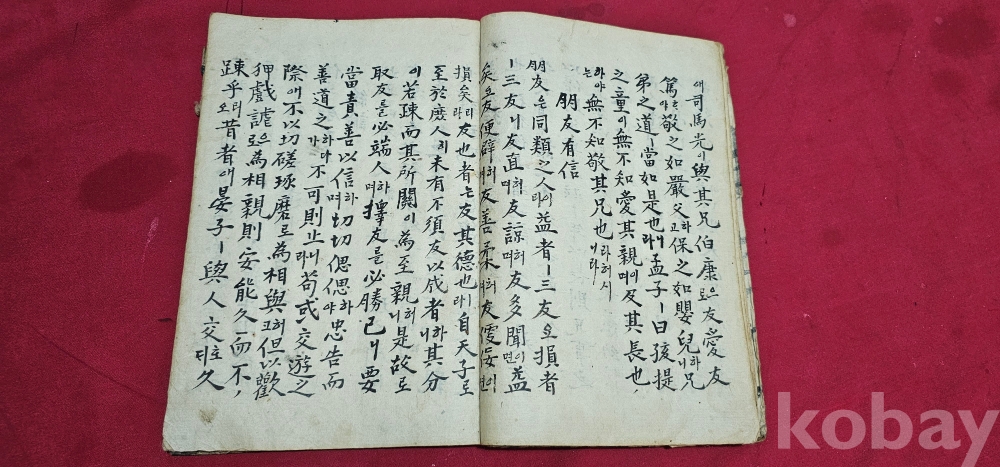 애司馬光이與其兄伯康으로友愛友
篤하야敬之如嚴父하고保之如嬰兒하니兄
弟之道ㅣ當如是也라니孟子ㅣ曰孩提
之童이無不知愛其親며이及其長也,
하야는無不知敬其兄也라허시니라
朋友有信
朋友은同類之人이라益者ㅣ三友오損者
ㅣ三友니友直허며友諒허며友多聞이면益
矣오友便辟허며友善柔허며友便佞이면
損矣리라友也者는友其德也라自天子로
至於庶人히未有不須友以成者하니其分
이若疎而其所關이為至親허니是故로
取友를必端人하며擇友를必勝己니要
當責善以信하며切切偲偲하야忠告而
善道之하다가不可則止라니苟或交遊之
際애不以切磋琢磨로為相與허고但以歡
狎戲謔으로為相親則安能久而不,
踈乎리오昔者애晏子ㅣ與人交호되久
kobay